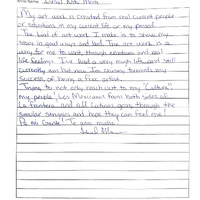 Artist Name: Daniel
My art work is created from real current people
or situations in my current life or my personal
The kind of art work I make is to show my
story in good ways and bad. The art work is a
way for me to work through emotions and real
life feelings. I've had a very rough life, and still
currently am but now I'm cruising towards my
success of being a free artist.
Trying to not only reach out to my "Culture"!
my people, Los Mexicanos from both sides of
La Frontera, and all Latinos going through the
similar struggles and hope they can feel me!
Pa Mi Gente! Te amo mucho!